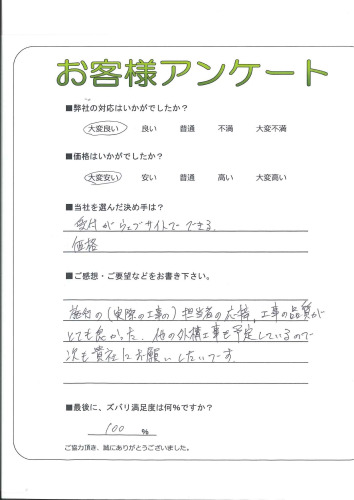 お客様アンケート
■弊社の対応はいかがでしたか？
大変良い 良い 普通 不満 大変不満
■価格はいかがでしたか？
大変安い 安い 普通 高い 大変高い
■当社を選んだ決め手は？
受付がウェブサイトでできる。
価格
■ご感想・ご要望などをお書き下さい。
施行の（実際の工事の）担当者の応接、工事の品質が
とても良かった。他の外構工事も予定しているので
次も貴社にお願いしたいです。
■最後に、ズバリ満足度は何%ですか？
100 %
ご協力頂き、誠にありがとうございました。